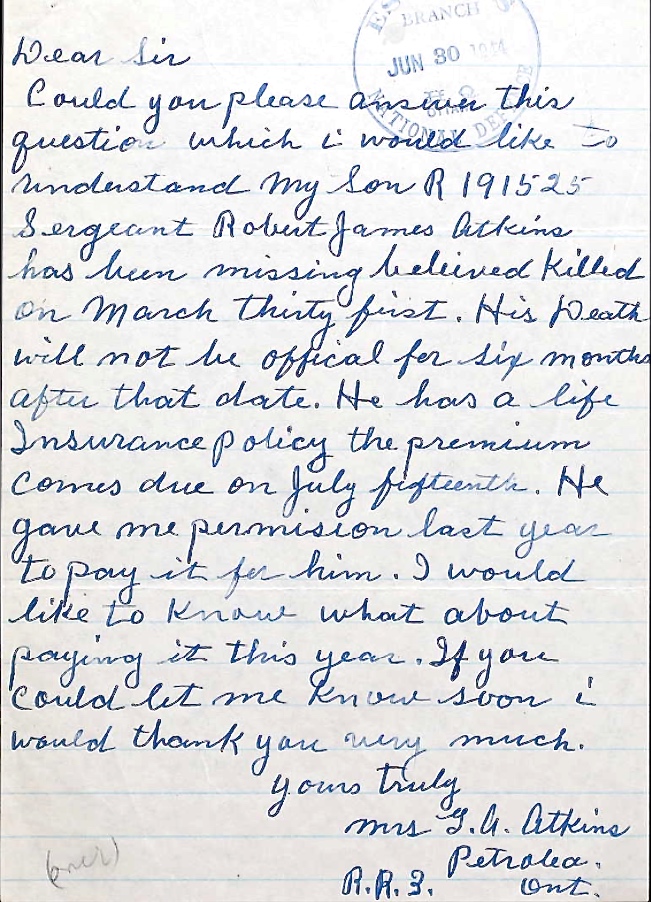 BRANCH
JUN 30 1944
NATIONAL DEFENCE
Dear Sir
Could you please answer this
question which i would like to
understand My Son R 191525
Sergeant Robert James Atkins
has been missing beleived Killed
on March thirty first. His Death
will not be offical for six months
after that date. He has a life
Insurance policy the premium
comes due on July fiefteenth. He
gave me permision last year
to pay it for him. I would
like to Know what about
paying it this year. If you
could let me Know soon i
would thank you very much.
yours truly
Mrs G.A. Atkins
Petrolea.
R.R.3. Ont.
(over)